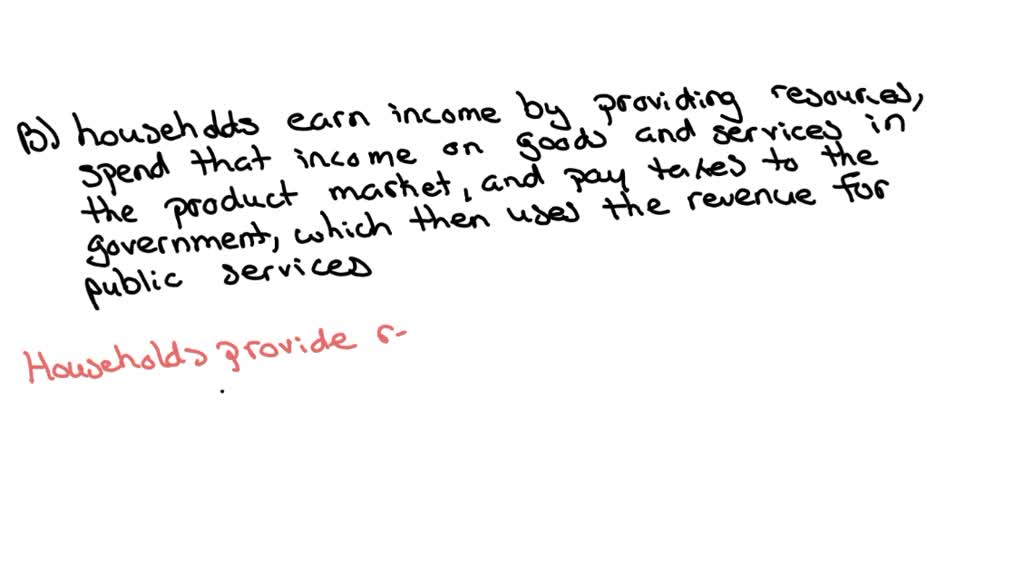 B) households earn income by providing resources,
spend that income on goods and services in
the product market, and pay taxes to the
government, which then uses the revenue for
public services
Households provide r